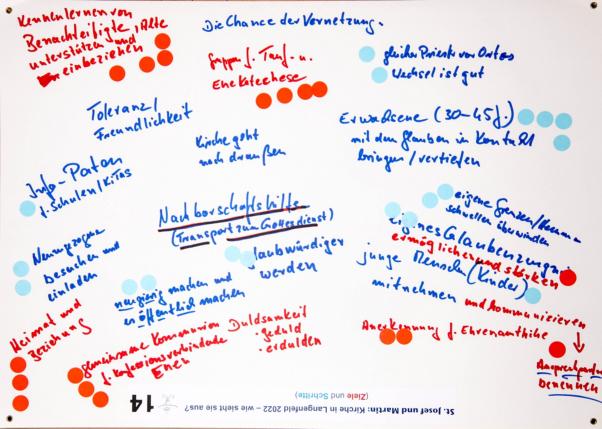 Kennenlernen von
Benachteiligte, Alte
unterstützen und
einbeziehen
Die Chance der Vernetzung.
Gruppen f. Tauf- u.
Ehekatechese
gleicher Priester vor Ort
Wechsel ist gut
Toleranz/
Freundlichkeit
Kirche geht
nach draußen
Erwachsene (30-45 J.)
mit dem Glauben in Kontakt
bringen/vertiefen
Info-Paten
f. Schulen/KiTas
Nachbarschaftshilfe
(Transport zum Gottesdienst)
eigene Grenzen
schneller überwinden
eigenes Glaubenszeugnis
ermöglichen und stärken
junge Menschen (Kinder)
mitnehmen und kommunizieren
Neuzugezogene
besuchen und
einladen
glaubwürdiger
werden
neugierig machen und
öffentlich machen
Heimat und
Beziehung
gemeinsame Kommunion
f. konfessionsverbindende
Ehen
Duldsamkeit
· geduld
· erdulden
Anerkennung f. Ehrenamtliche
Ansprechpartner
benennen
St. Josef und Martin: Kirche in Langenfeld 2022 – wie sieht sie aus?
(Ziele und Schritte)
14